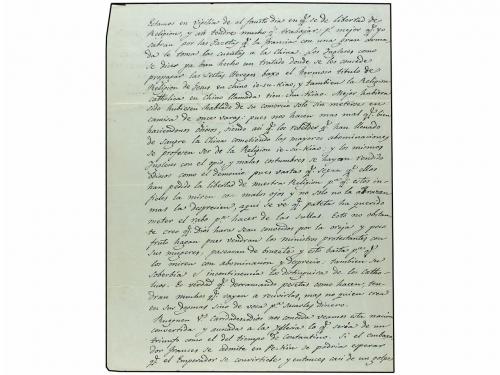 Estamos en vispera del fausto dia en qᵉ se dé libertad de
Religion, y asi tendre mucho qᵉ trabajar. Pᵉ mejor qᵉ yo
sabran por las Gacetas qᵉ la Francia con una gran arma-
da le toma las cuentas a la China. Los Ingleses como
se dice ya han hecho un tratado donde se les concede
propagar las Sectas Hereges baxo el hermoso titulo de
Religion de Jesus en chino ie-su-kiao, y tambien la Religion
catholica en chino llamada tien-chu-kiao. Mejor hubiera
sido hubiesen hablado de su comercio solo sin meterse en
camisa de once varas: pues no hacen mas mal qᵉ bien
haciendonos odiosos, siendo asi qᵉ los rebeldes qᵉ han llenado
de sangre la China cometiendo las mayores abominaciones
se profesen ser de la Religion ie-su-kiao: y los mismos
Ingleses con el opio, y malas costumbres se hayan vendido
odiosos como el demonio, pues hartas qᵉ sepan qᵉ ellos
han pedido la libertad de nuestra Religion pᵃ qᵉ estos in-
fieles la miren con malos ojos y no solo no la abrazen
mas la desprecien, aqui se ve qᵉ pateta ha querido
meter el rabo pᵃ hacer de las suyas. Esto no obstan-
te creo qᵉ Dios hara sean conocidos por la oreja y poco
fruto hagan pues vendran los ministros protestantes con
sus mugeres, pasearan de bracete y esto basta pᵃ qᵉ
los miren con abominacion y desprecio, tambien su
soberbia e incontinencia los distinguira de los Catho-
licos. Es verdad qᵉ derramando pesetas como hacen, ten-
dran muchos qᵉ vayan a recivirlas, mas no quien crea
en sus dogmas sino de veras pᵃ sacarles dinero.
Rueguen Vᵉ cardadeadios nos conceda veamos esta nacion
convertida y aunada a la Yglesia lo qᵉ seria de un
triunfo como el del tiempo de constantino. Si el emba-
dor Frances se admite en Pe-kin se podria esperar
qᵉ el Emperador se convirtiese y entonces casi de un golpe